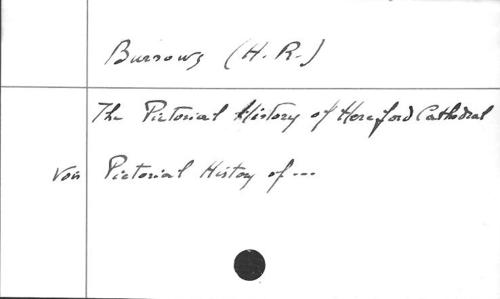 Burrows (H. R.)
The Pictorial History of Hereford Cathedral
Voir Pictorial History of ...